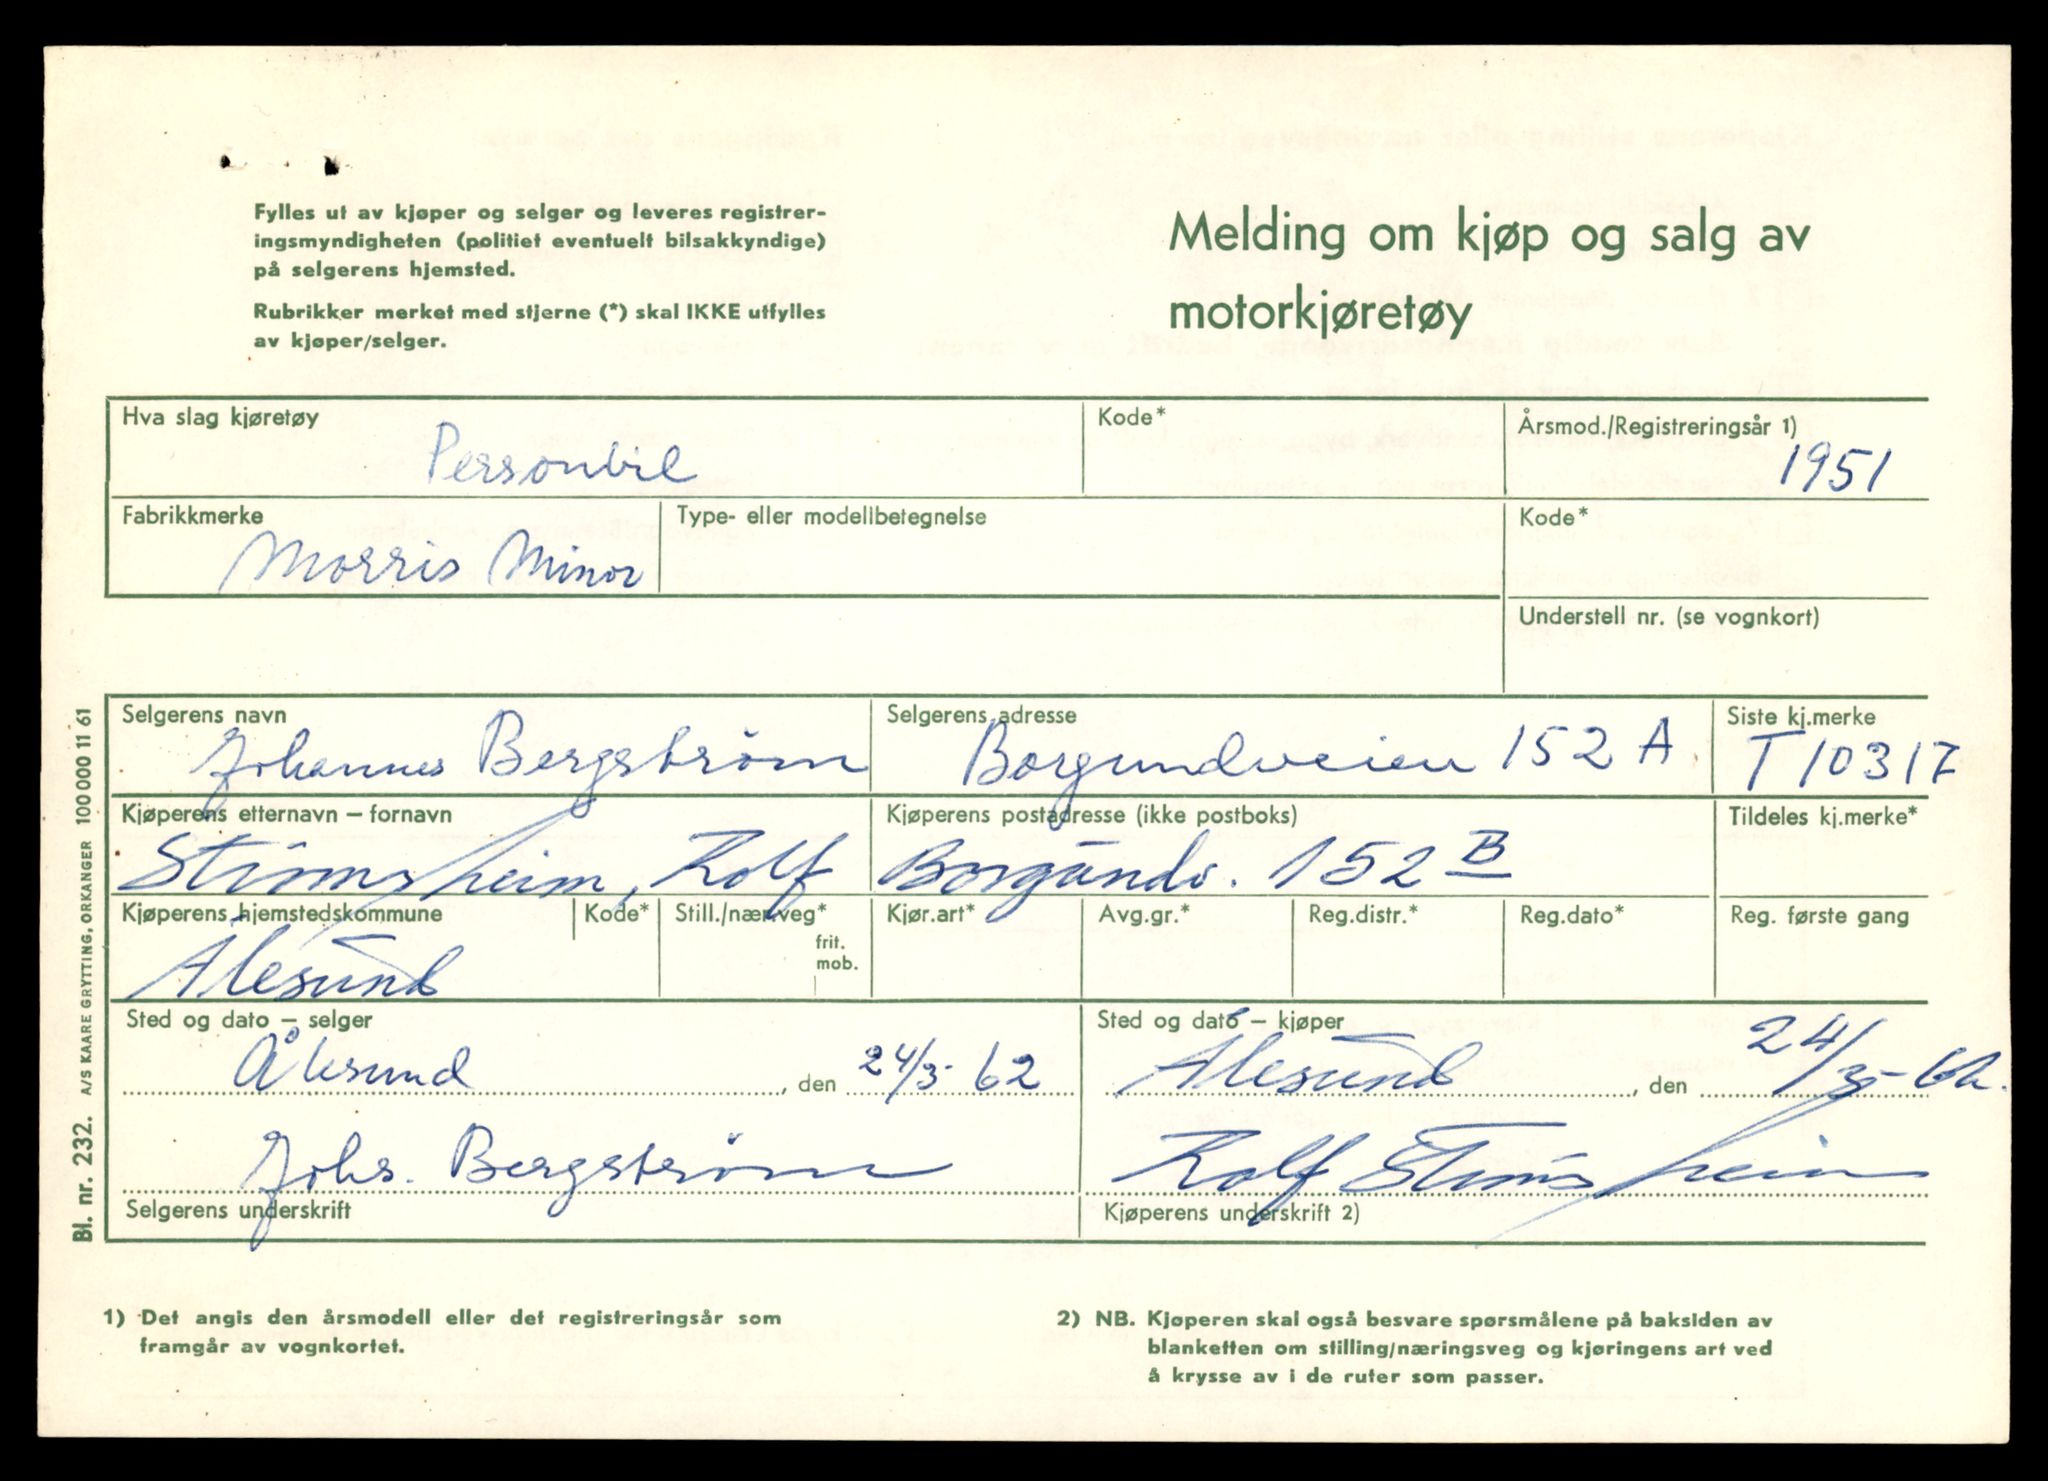 Fylles ut av kjøper og selger og leveres registrer-
ingsmyndigheten (politiet eventuelt bilsakkyndige)
på selgerens hjemsted.
Rubrikker merket med stjerne (*) skal IKKE utfylles
av kjøper/selger.
Melding om kjøp og salg av
motorkjøretøy
Hva slag kjøretøy
Personbil
Kode*
Årsmod./Registreringsår 1)
1951
Fabrikkmerke
Morris Minor
Type- eller modellbetegnelse
Kode*
Understell nr. (se vognkort)
Selgerens navn
Johannes Bergstrøm
Selgerens adresse
Borgundveien 152 A
Siste kj.merke
T 10317
Kjøperens etternavn – fornavn
Strømsheim, Rolf
Kjøperens postadresse (ikke postboks)
Borgundv. 152 B
Tildeles kj.merke*
Kjøperens hjemstedskommune
Ålesund
Kode*
Still./nær.veg*
frit.
mob.
Kjør.art*
Avg.gr.*
Reg.distr.*
Reg.dato*
Reg. første gang
Sted og dato – selger
Ålesund, den 24/3-62
Sted og dato – kjøper
Ålesund, den 24/3-62.
Johs. Bergstrøm
Selgerens underskrift
Rolf Strømsheim
Kjøperens underskrift 2)
1) Det angis den årsmodell eller det registreringsår som
framgår av vognkortet.
2) NB. Kjøperen skal også besvare spørsmålene på baksiden av
blanketten om stilling/næringsveg og kjøringens art ved
å krysse av i de ruter som passer.
Bl. nr. 232. A/S KAARE GRYTTING, ORKANGER 100 000 11 61